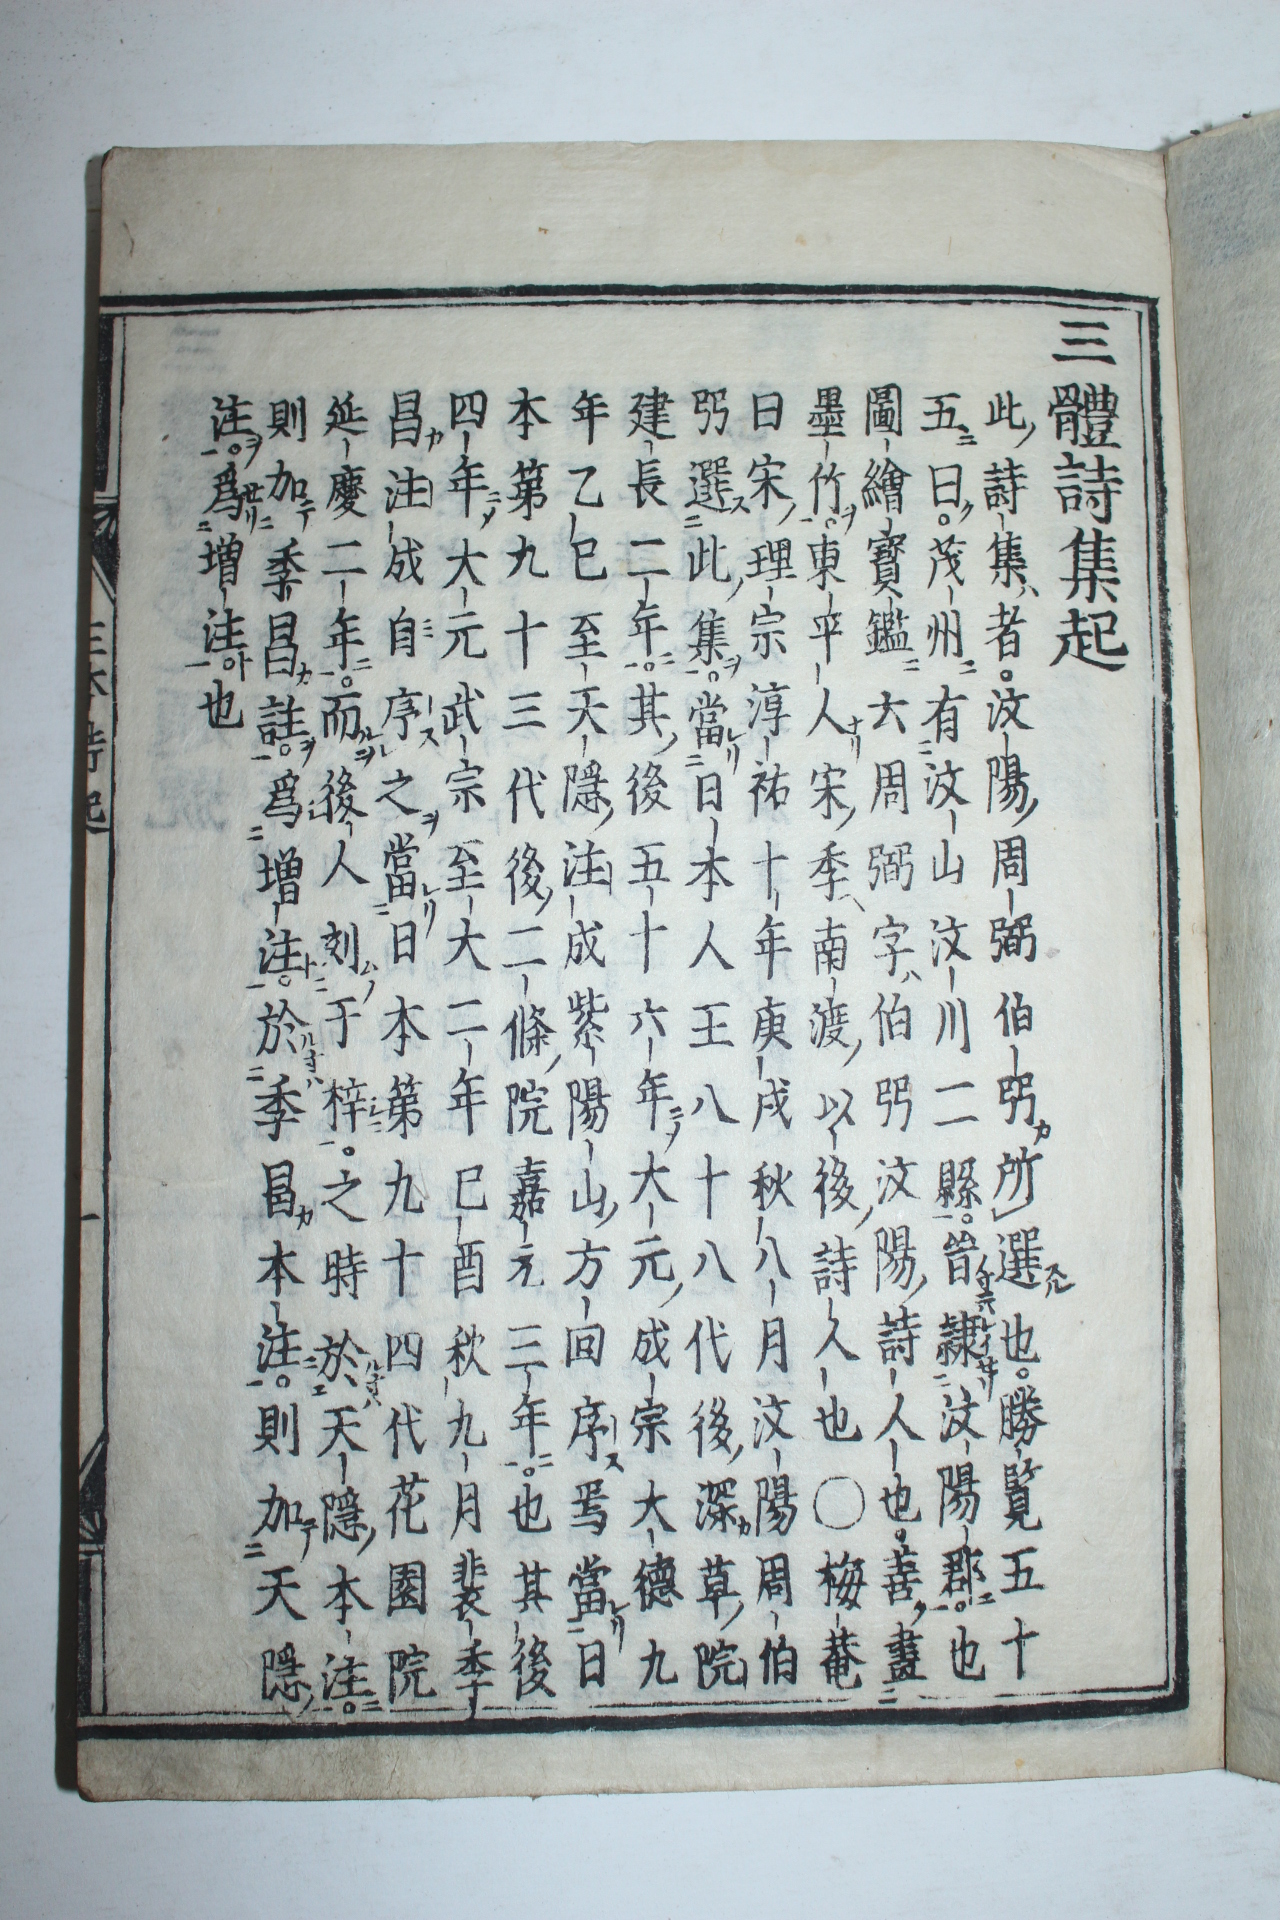 三體詩集起
此詩集者。汶陽周弼伯弜所選也。勝覽五十
五曰。茂州有汶山汶川二縣。昔隷汶陽郡。也
圖繪寶鑑大周弼字伯弜汶陽詩人也。善畫
墨竹。東平人宋季南渡以後詩人也○梅菴
曰宋理宗淳祐十年庚戌秋八月汶陽周伯
弜選此集。當日本人王八十八代後深草院
建長二年。其後五十六年大元成宗大德九
年乙巳至天隱注成紫陽山方回序焉當日
本第九十三代後二條院嘉元三年。也其後
四年大元武宗至大二年巳酉秋九月裴季
昌注成自序之當日本第九十四代花園院
延慶二年。而後人刻于梓。之時於天隱本注。
則加季昌註。爲增注。於季昌本注。則加天隱
注。爲增注。也